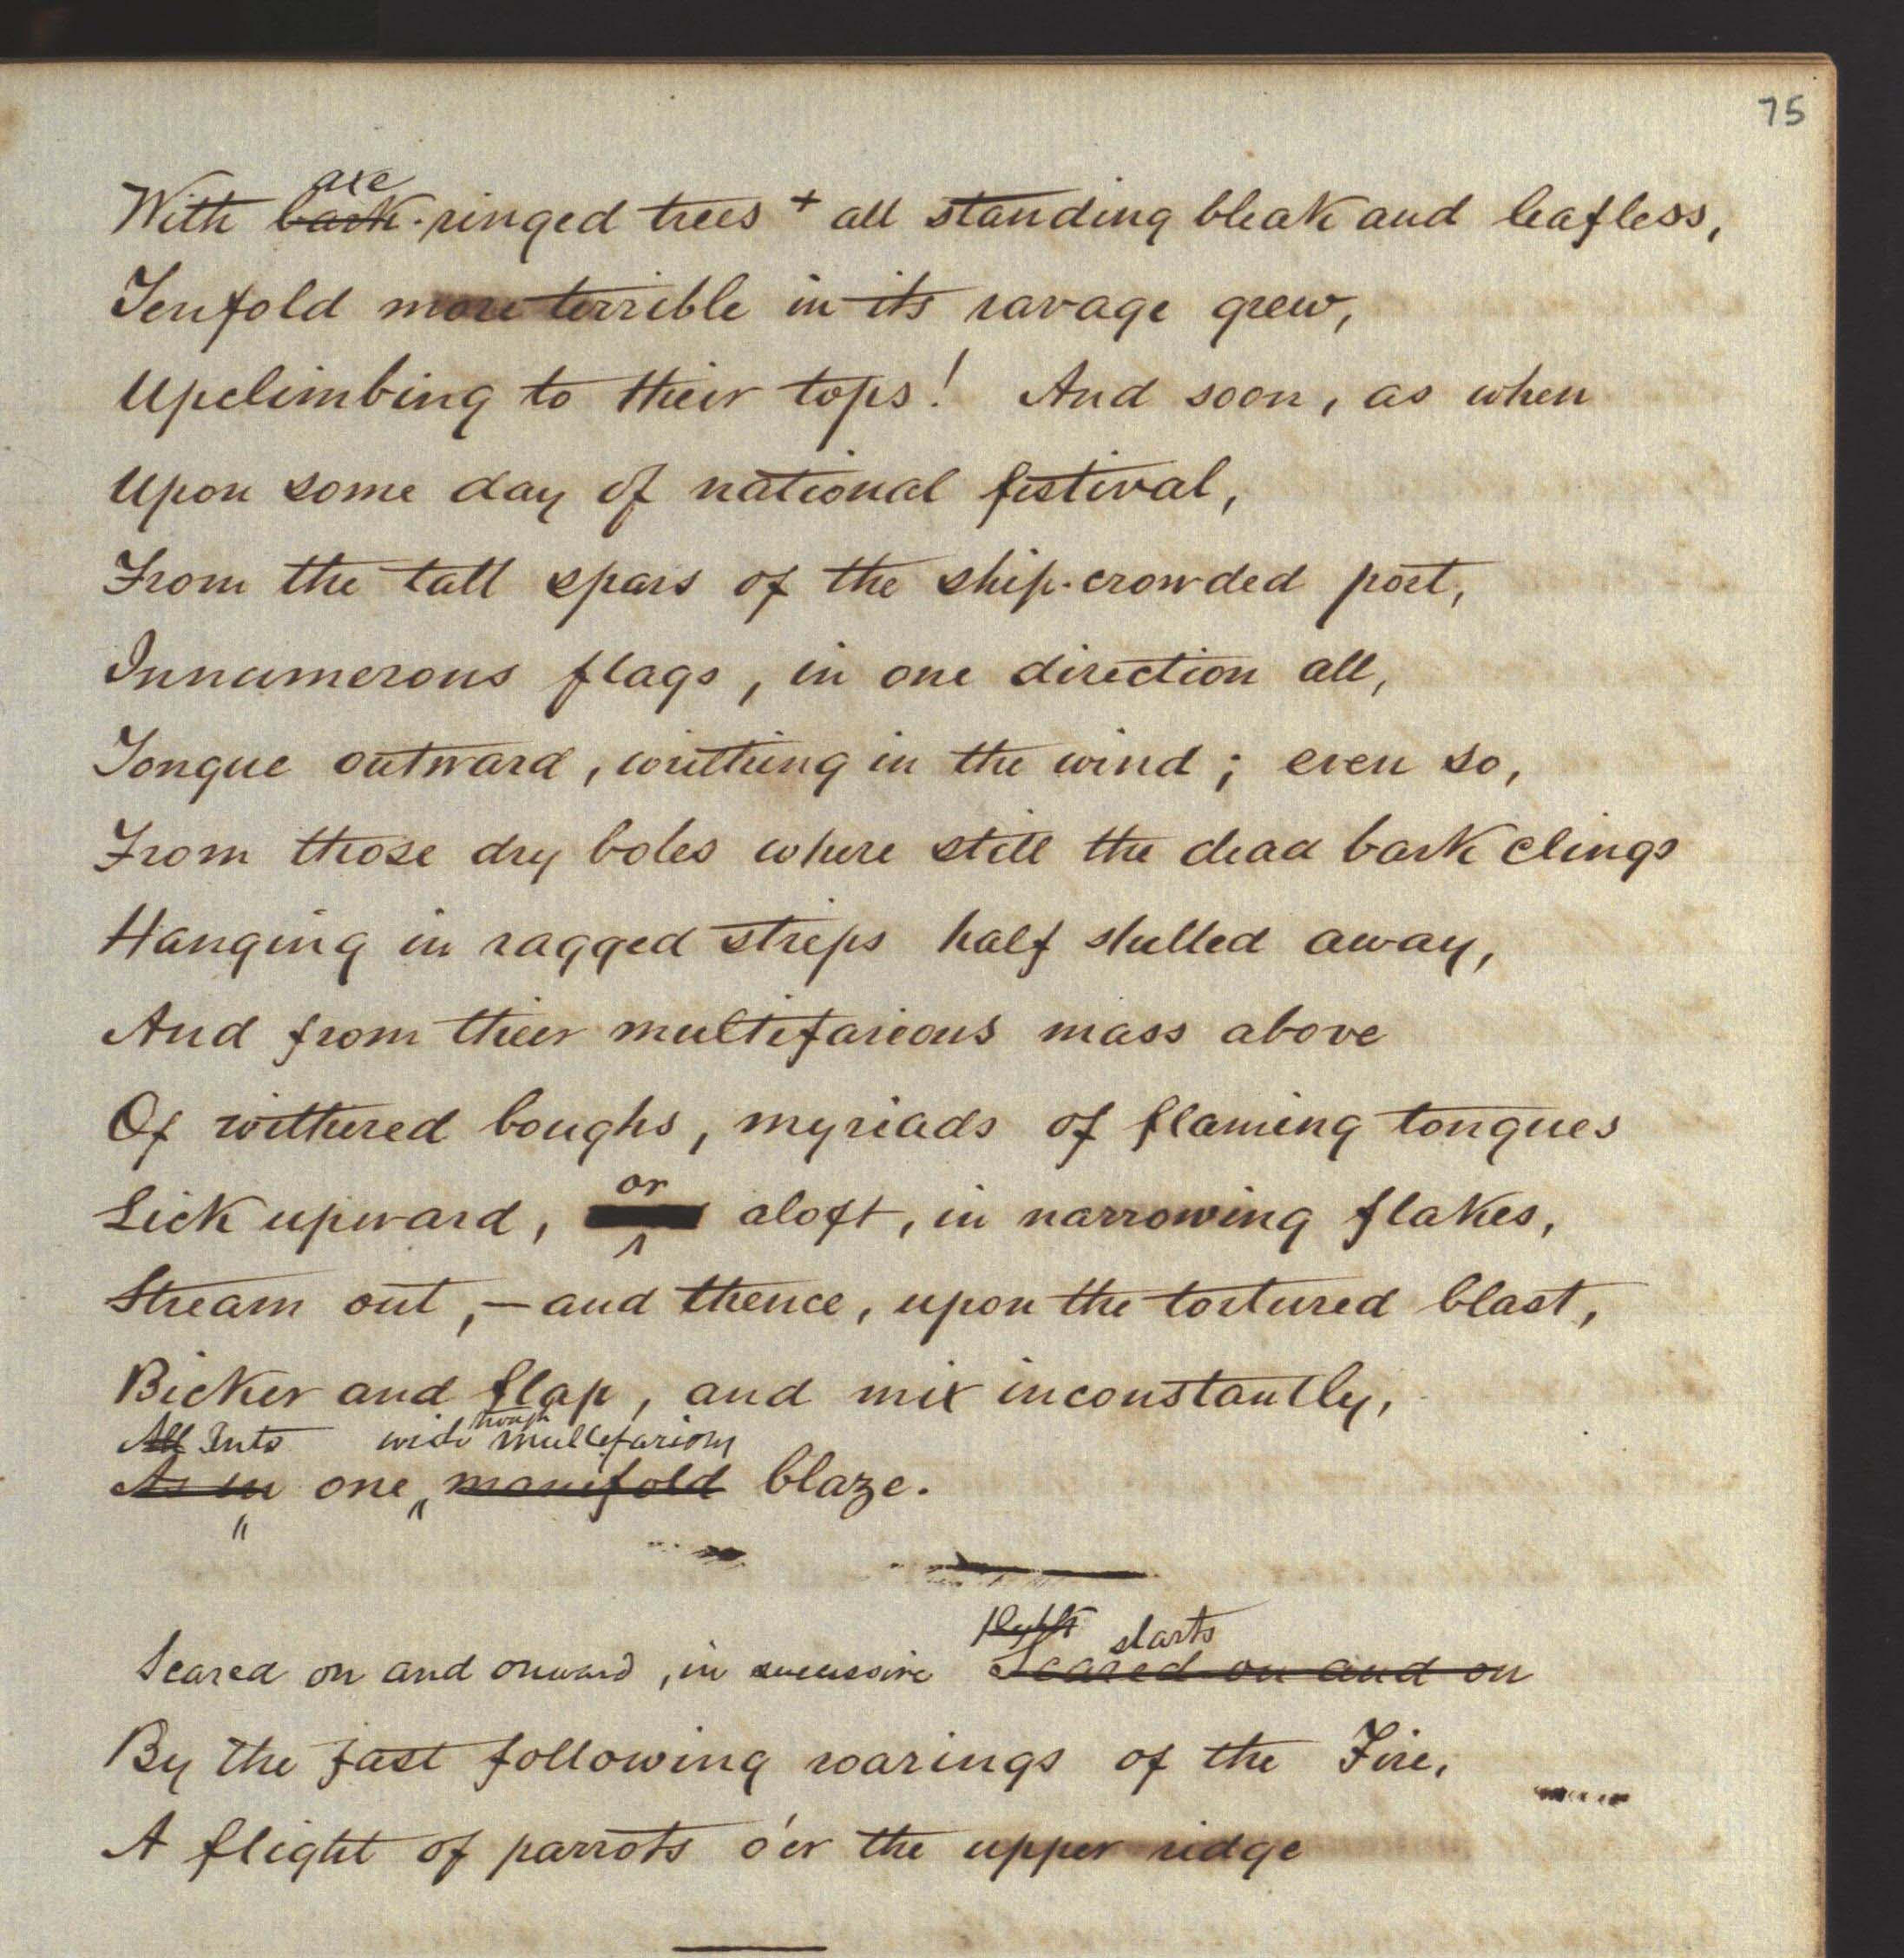 75
axe
With bark-ringed trees + all standing bleak and leafless,
Tenfold more terrible in its ravage grew,
Upclimbing to their tops! And soon, as when
Upon some day of national festival,
From the tall spars of the ship-crowded port,
Innumerous flags, in one direction all,
Tongue outward, writhing in the wind; even so,
From those dry boles where still the dead bark clings
Hanging in ragged strips half shelled away,
And from their multifarious mass above
Of withered boughs, myriads of flaming tongues
or
Lick upward, aloft, in narrowing flakes,
Stream out,—and thence, upon the tortured blast,
Bicker and flap, and mix inconstantly,
though
All Into wide multifarious
As in one manifold blaze.
starts
Scared on and onward, in successive Scared on and on
By the fast following roarings of the Fire,
A flight of parrots o'er the upper ridge